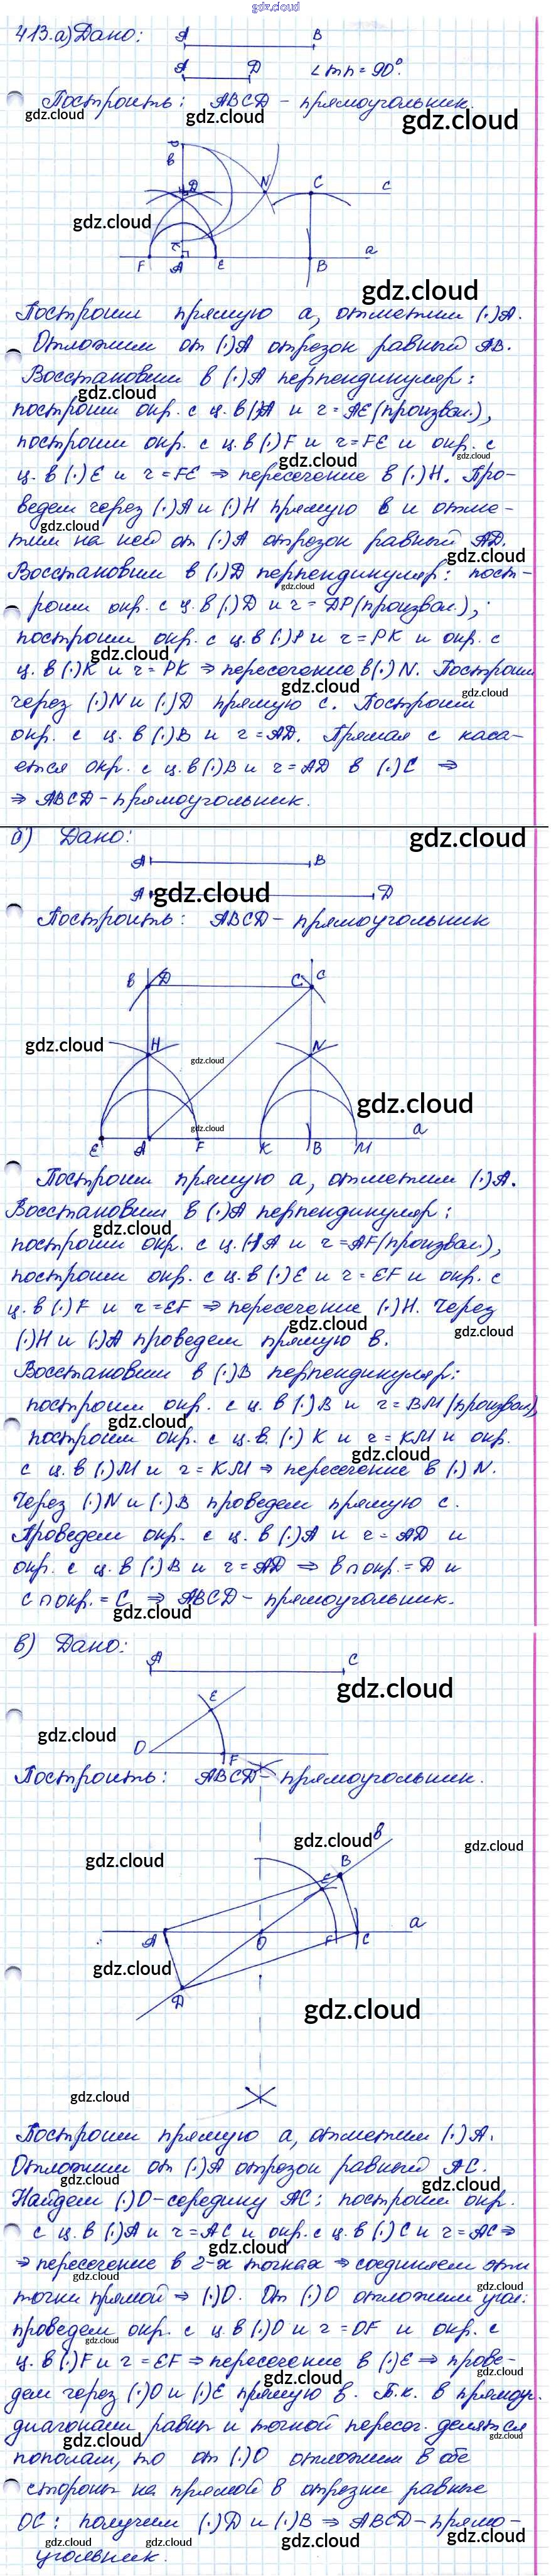 gdz.cloud
413.а) Дано: А В
А D ∠mn = 90°.
Построить: ABCD - прямоугольник.
в
D N C c
a
F A E B
Построим прямую a, отметим (·)A.
Отложим от (·)A отрезок равный AB.
Восстановим в (·)A перпендикуляр:
построим окр. с ц. в (·)A и r = AE (произвол.),
построим окр. с ц. в (·)F и r = FE и окр. с
ц. в (·)E и r = FE ⇒ пересечение в (·)H. Про-
ведем через (·)A и (·)H прямую в и отме-
тим на ней от (·)A отрезок равный AD.
Восстановим в (·)D перпендикуляр: пост-
роим окр. с ц. в (·)D и r = DP (произвол.),
построим окр. с ц. в (·)P и r = PK и окр. с
ц. в (·)K и r = PK ⇒ пересечение в (·) N. Построим
через (·)N и (·)D прямую c. Построим
окр. с ц. в (·)B и r = AD. Прямая c каса-
ется окр. с ц. в (·)B и r = AD в (·)C ⇒
⇒ ABCD - прямоугольник.
б) Дано:
A B
A D
Построить: ABCD - прямоугольник
в D C c
H N
E A F K B M a
Построим прямую a, отметим (·)A.
Восстановим в (·)A перпендикуляр:
построим окр. с ц. (·)A и r = AF (произвол.),
построим окр. с ц. в (·)E и r = EF и окр. с
ц. в (·)F и r = EF ⇒ пересечение (·)H. Через
(·)H и (·)A проведем прямую в.
Восстановим в (·)B перпендикуляр:
построим окр. с ц. в (·)B и r = BM (произвол),
построим окр. с ц. в. (·) K и r = KM и окр.
с ц. в (·)M и r = KM ⇒ пересечение в (·) N.
Через (·)N и (·)B проведем прямую c.
Проведем окр. с ц. в (·)A и r = AD и
окр. с ц. в (·)B и r = AD ⇒ в ∩ окр. = D и
c ∩ окр. = C ⇒ ABCD - прямоугольник.
в) Дано:
A C
E
O F
Построить: ABCD - прямоугольник.
в
E B
A O F C a
D
Построим прямую a, отметим (·)A.
Отложим от (·)A отрезок равный AC.
Найдем (·)O - середину AC: построим окр.
с ц. в (·)A и r = AC и окр. с ц. в (·)C и r = AC ⇒
⇒ пересечение в 2-х точках ⇒ соединяем эти
точки прямой ⇒ (·)O. От (·)O отложим угол:
проведем окр. с ц. в (·)O и r = OF и окр. с
ц. в (·)F и r = EF ⇒ пересечение в (·)E ⇒ прове-
дем через (·)O и (·)E прямую в. Т.к. в прямоуг.
диагонали равны и точкой пересеч. делятся
пополам, то от (·)O отложим в обе
стороны на прямой в отрезки равные
OC: получим (·)D и (·)B ⇒ ABCD - прямо-
угольник.